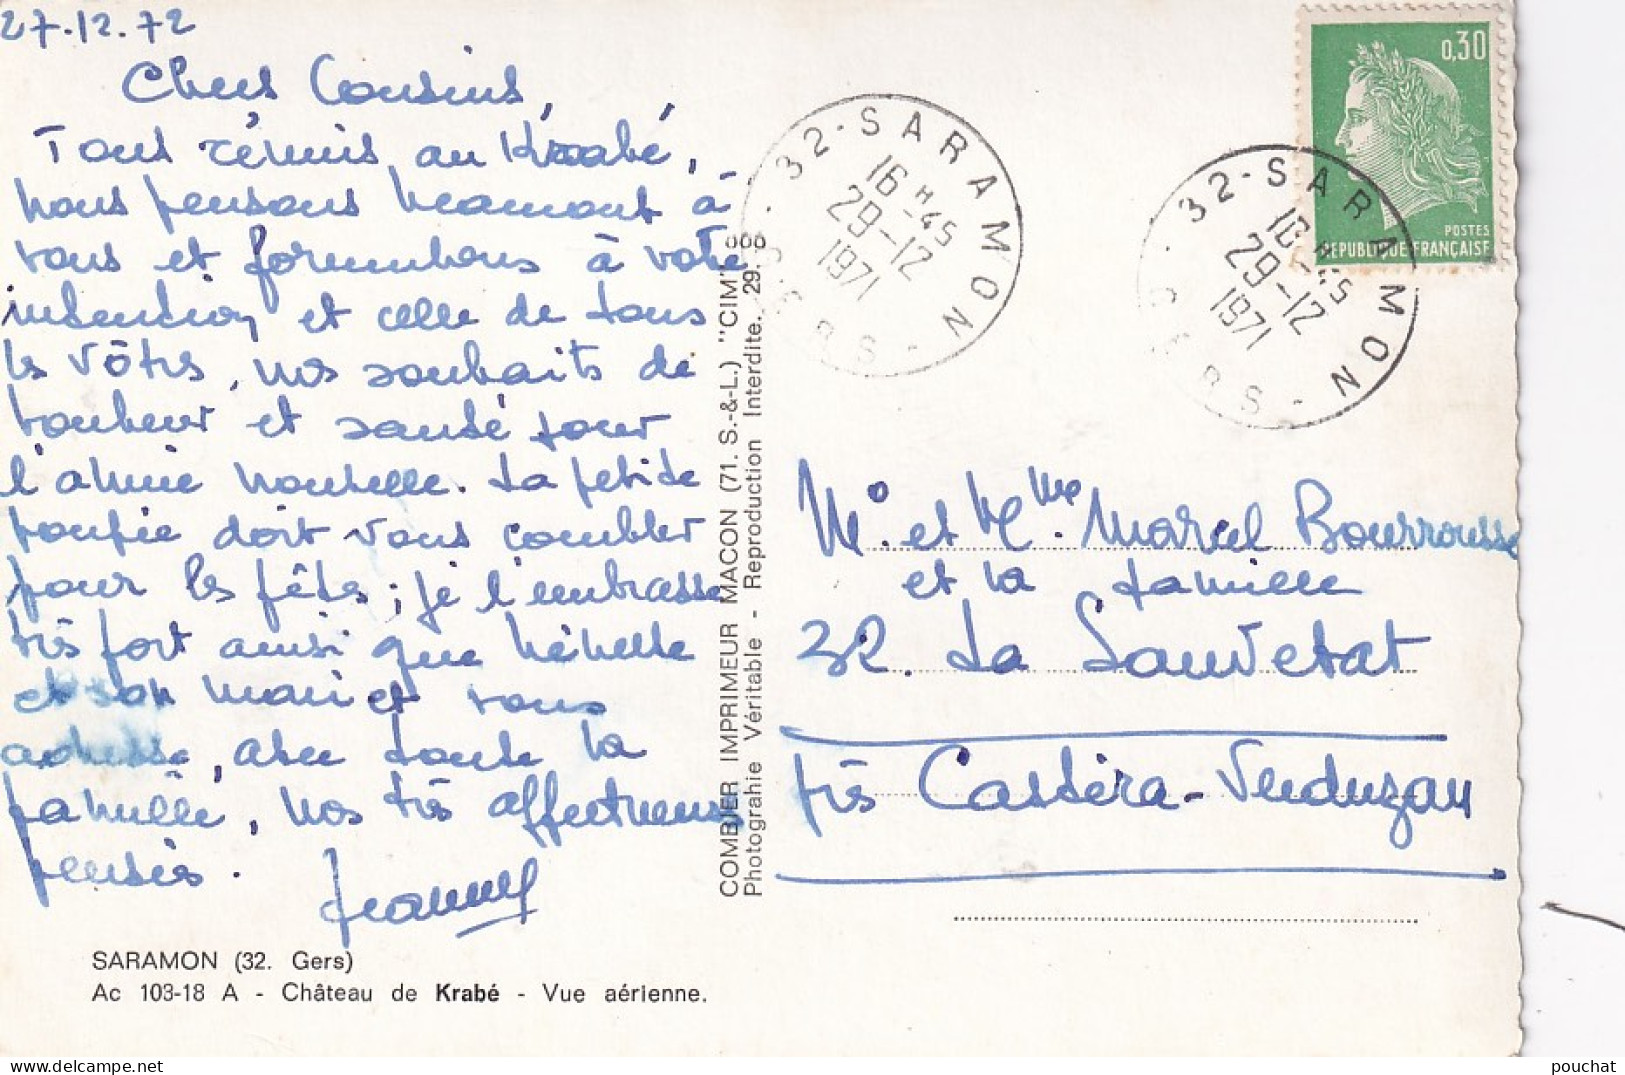 27.12.72
Chers Cousins,
Tous réunis au Krabé,
nous pensons vraiment à
vous et formulons à votre
intention et celle de tous
les vôtres, nos souhaits de
bonheur et santé pour
l'année nouvelle. La petite
poupée doit vous combler
pour les fêtes ; je l'embrasse
très fort ainsi que
et son mari et vous
adresse, avec toute la
famille, nos très affectueuses
pensées.
SARAMON (32. Gers)
Ac 103-18 A - Château de Krabé - Vue aérienne.
COMBIER IMPRIMEUR MACON (71. S.-&-L.) "CIM"
Photograhie Véritable - Reproduction Interdite.
32 - SARAMON
16 H -45
29-12
1971
32 - SARAMON
29-12
1971
0,30
POSTES
REPUBLIQUE FRANÇAISE
Mr et Mme Marcel Bourrousse
et la famille
32. La Sauvetat
près Castéra-Verduzan
pouchat